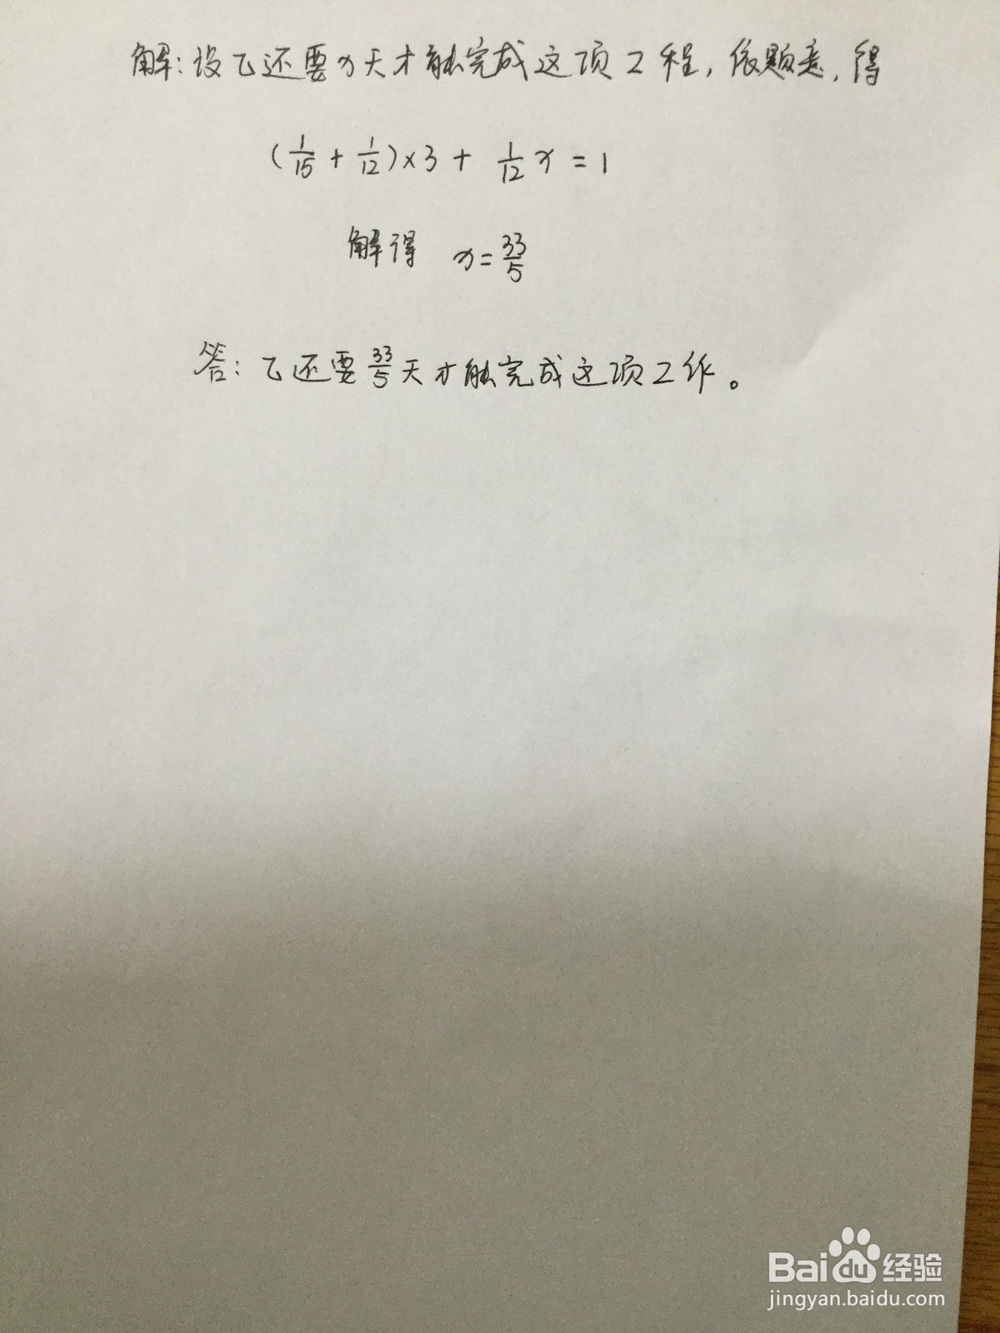 解：设乙还要x天才能完成这项工程，依题意，得
(1/15 + 1/12)×3 + 1/12 x = 1
解得 x = 33/5
答：乙还要33/5天才能完成这项工作。
Baidu经验
jingyan.baidu.com